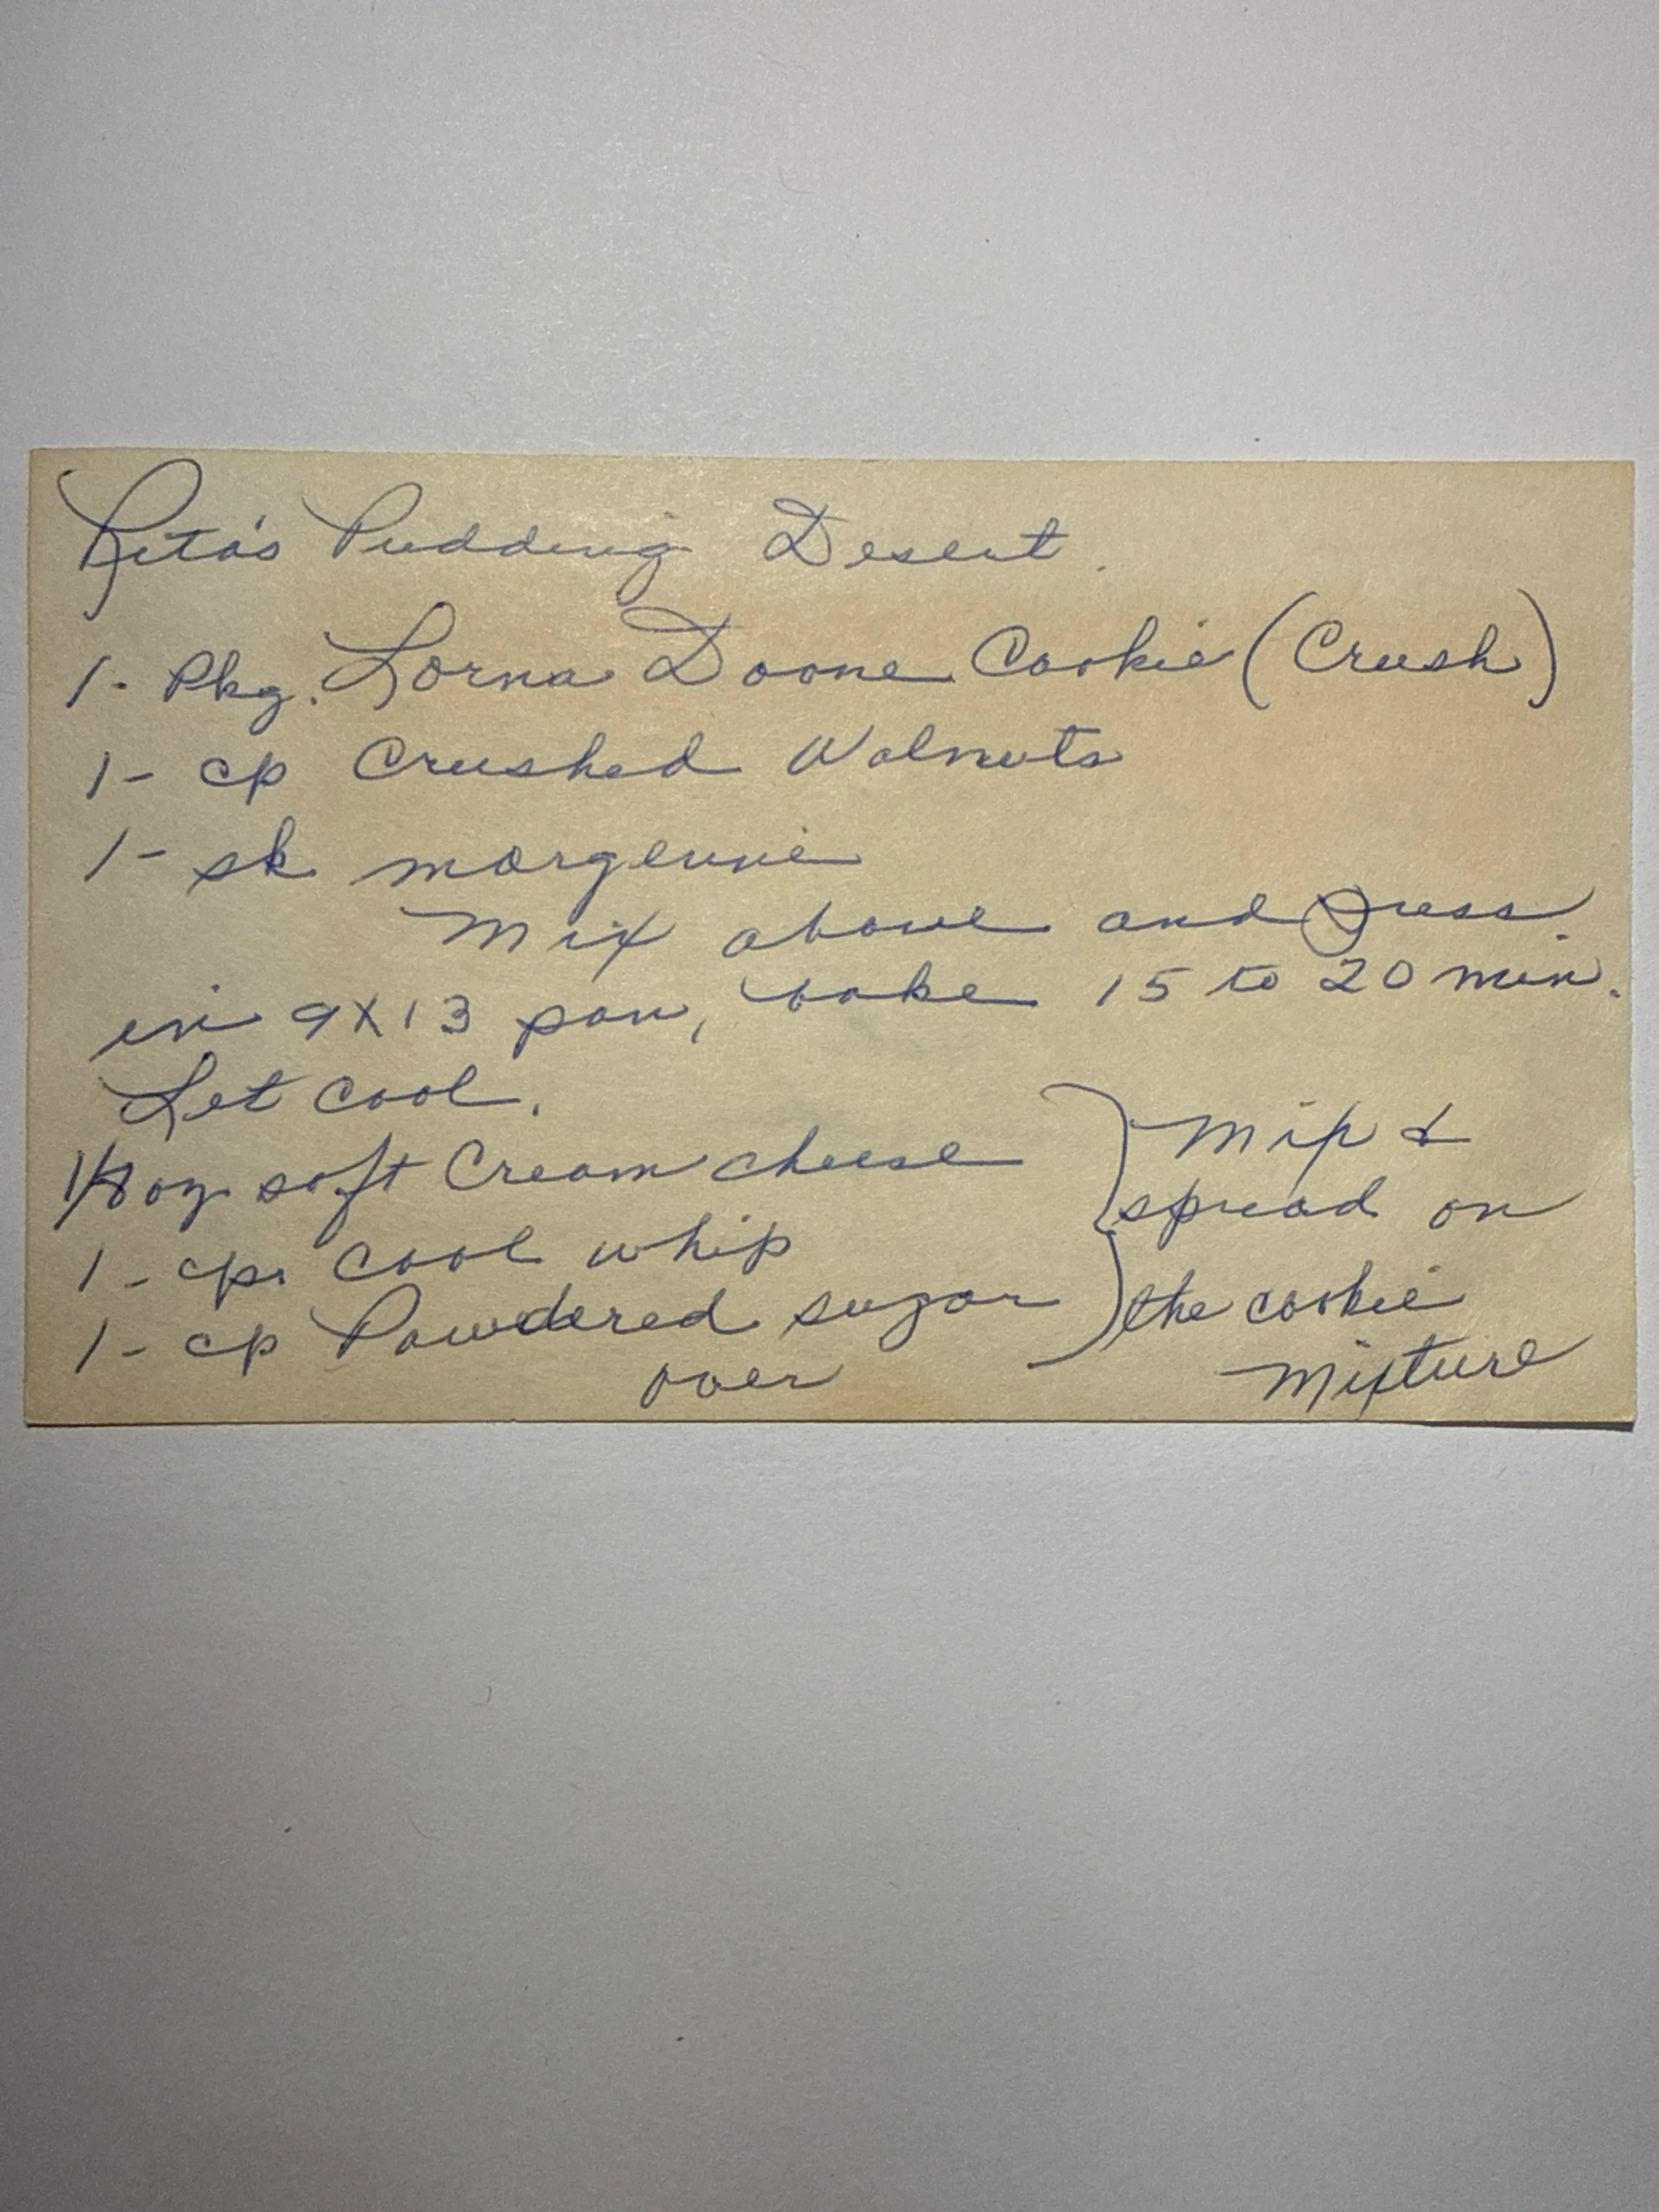 Rita's Pudding Desert.
1- Pkg. Lorna Doone Cookie (Crush)
1- cp Crushed Walnuts
1- sk margerine
Mix above and press
in 9X13 pan, bake 15 to 20 min.
Let cool.
1/8 oz soft Cream cheese
1- cp. cool whip
1- cp Powdered sugar
} Mix &
spread on
the cookie
mixture
over